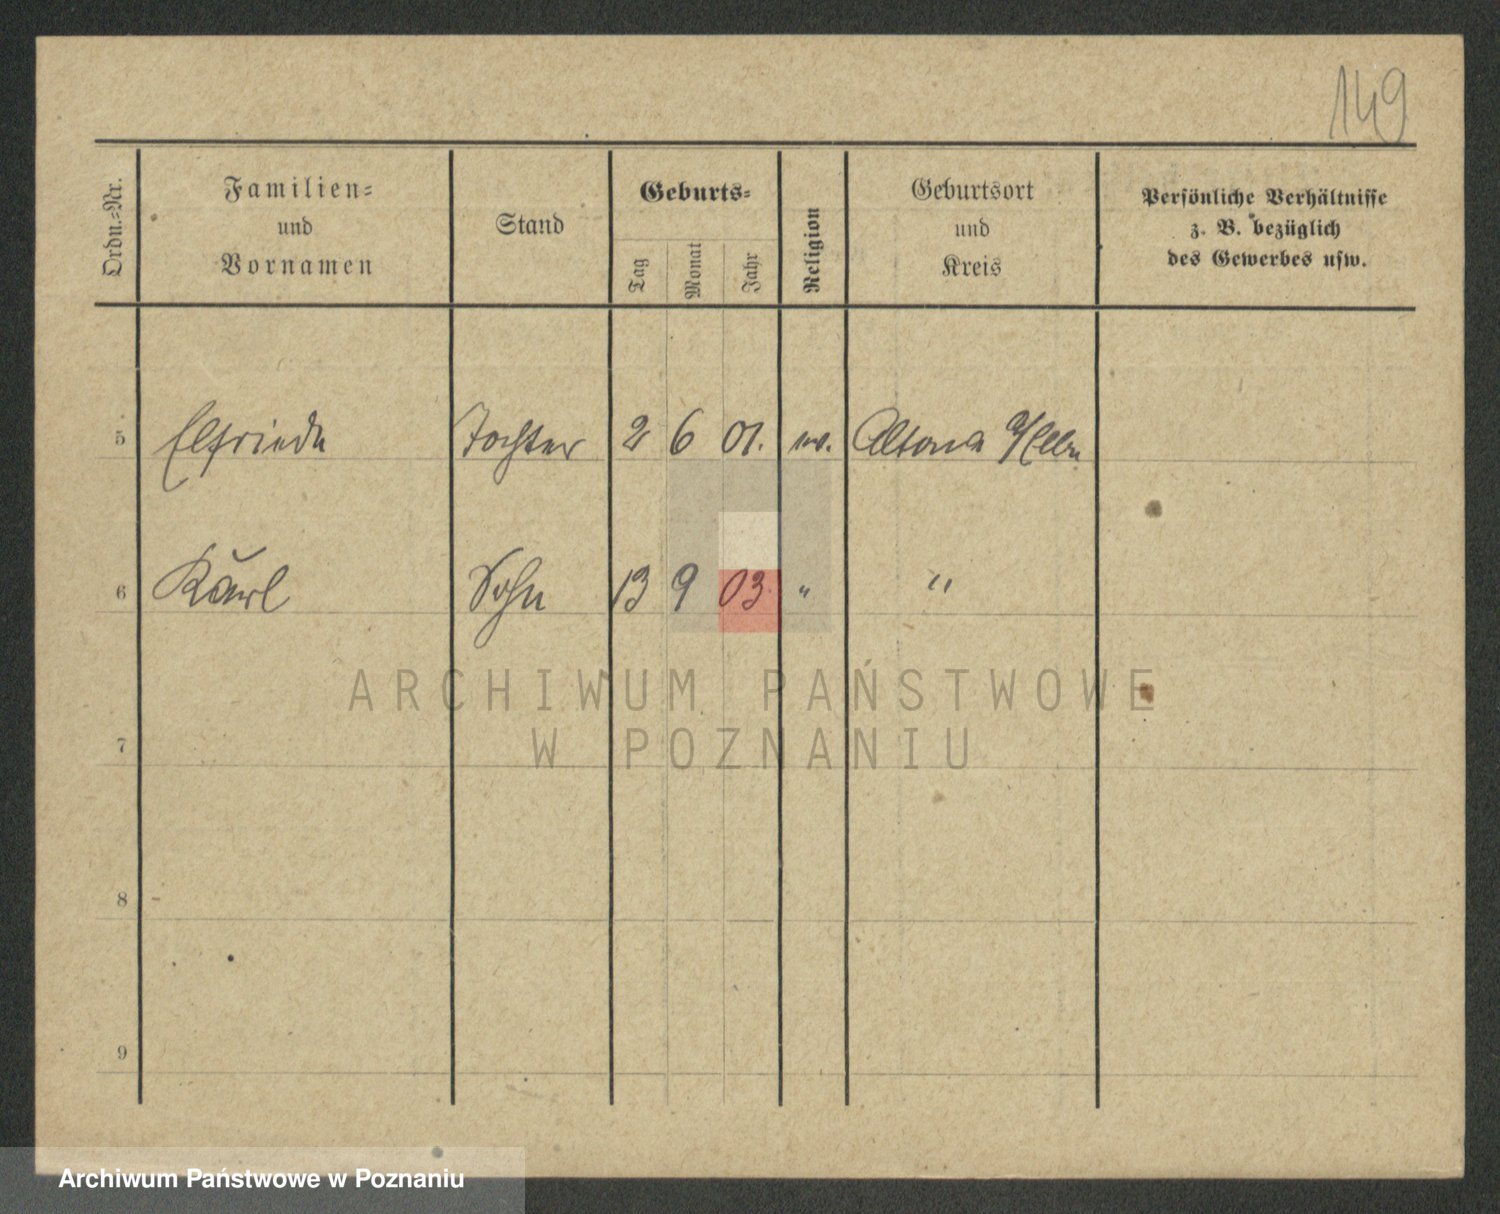 149
Ordn.=Nr.
Familien=
und
Vornamen
Stand
Geburts=
Tag
Monat
Jahr
Religion
Geburtsort
und
Kreis
Persönliche Verhältnisse
z. B. bezüglich
des Gewerbes usw.
5 Elfriede Tochter 2 6 01. Altona
6 Karl Sohn 13 9 03. " "
ARCHIWUM PAŃSTWOWE
W POZNANIU
7
8
9
Archiwum Państwowe w Poznaniu